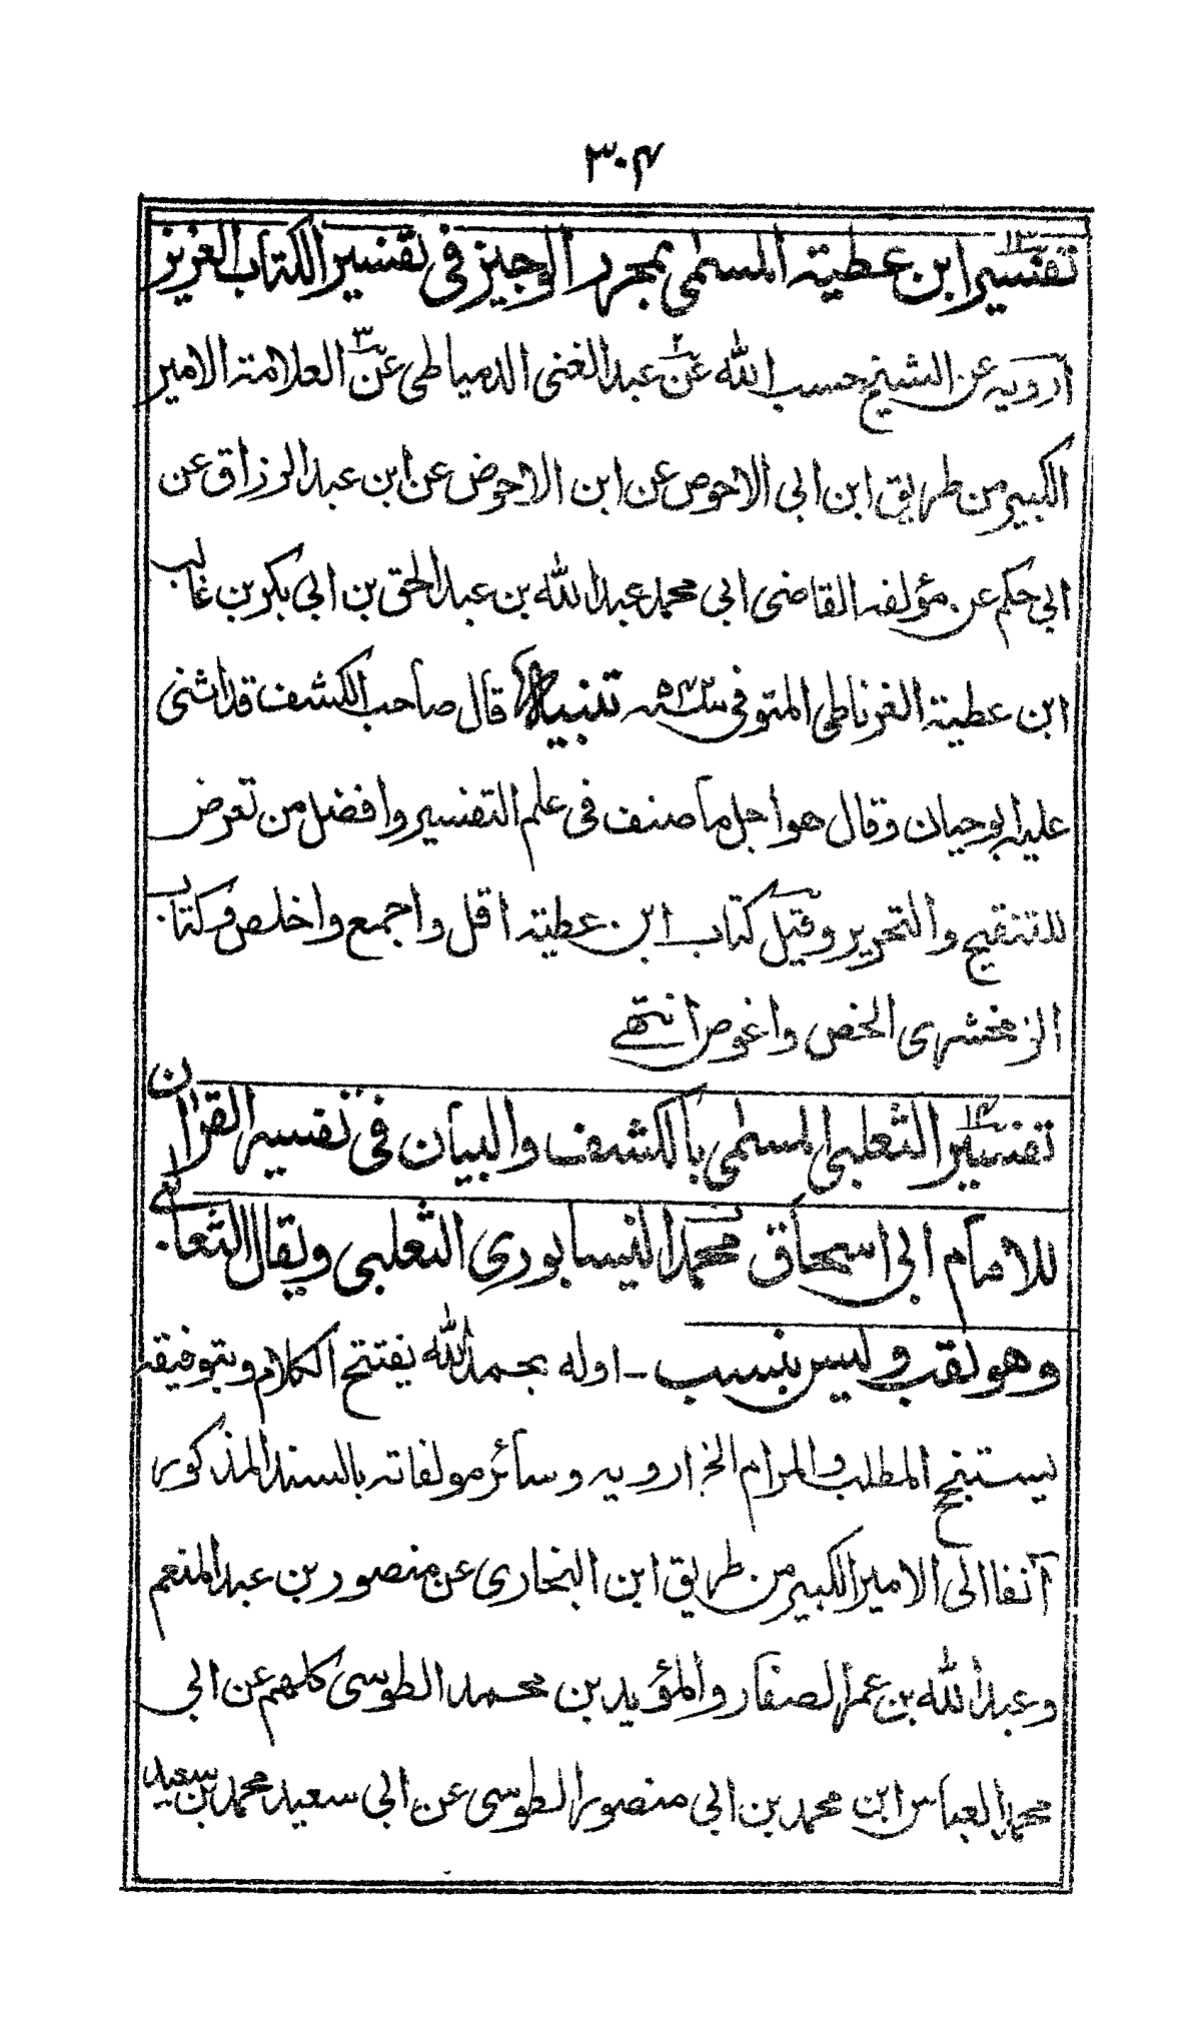 ٣٠٤
تفسير ابن عطية المسمى بمحرر الوجيز فى تفسير الكتاب العزيز
ارويه عن الشيخ حسب الله عن عبد الغنى الدمياطى عن العلامة الامير
الكبير من طريق ابن ابى الاحوص عن ابن الاحوض عن ابن عبد الرزاق عن
ابى حكم عن مؤلفه القاضى ابى محمد عبد الله بن عبد الحق بن ابى بكر بن غالب
ابن عطية الغرناطى المتوفى سنه تنبيه قال صاحب الكشف قد اثنى
عليه ابو حيان وقال هو اجل ما صنف فى علم التفسير وافضل من تعرض
للتنقيح والتحرير وقيل كتاب ابن عطية اقل واجمع واخلص وكتاب
الزمخشرى الخص واغوص انتهى
تفسير الثعلبى المسمى بالكشف والبيان فى تفسير القرآن
للامام ابى اسحاق محمد النيسابورى الثعلبى ويقال الثعالبى
وهو لقب وليس بنسب - اوله بحمد الله يفتتح الكلام وبتوفيقه
يستنجح المطلب والمرام الخ ارويه وسائر مولفاته بالسند المذكور
آنفا الى الامير الكبير من طريق ابن البخارى عن منصور بن عبد المنعم
وعبد الله بن عمر الصفار والمؤيد بن محمد الطوسى كلهم عن ابى
محمد العباس ابن محمد بن ابى منصور الطوسى عن ابى سعيد محمد بن سعيد